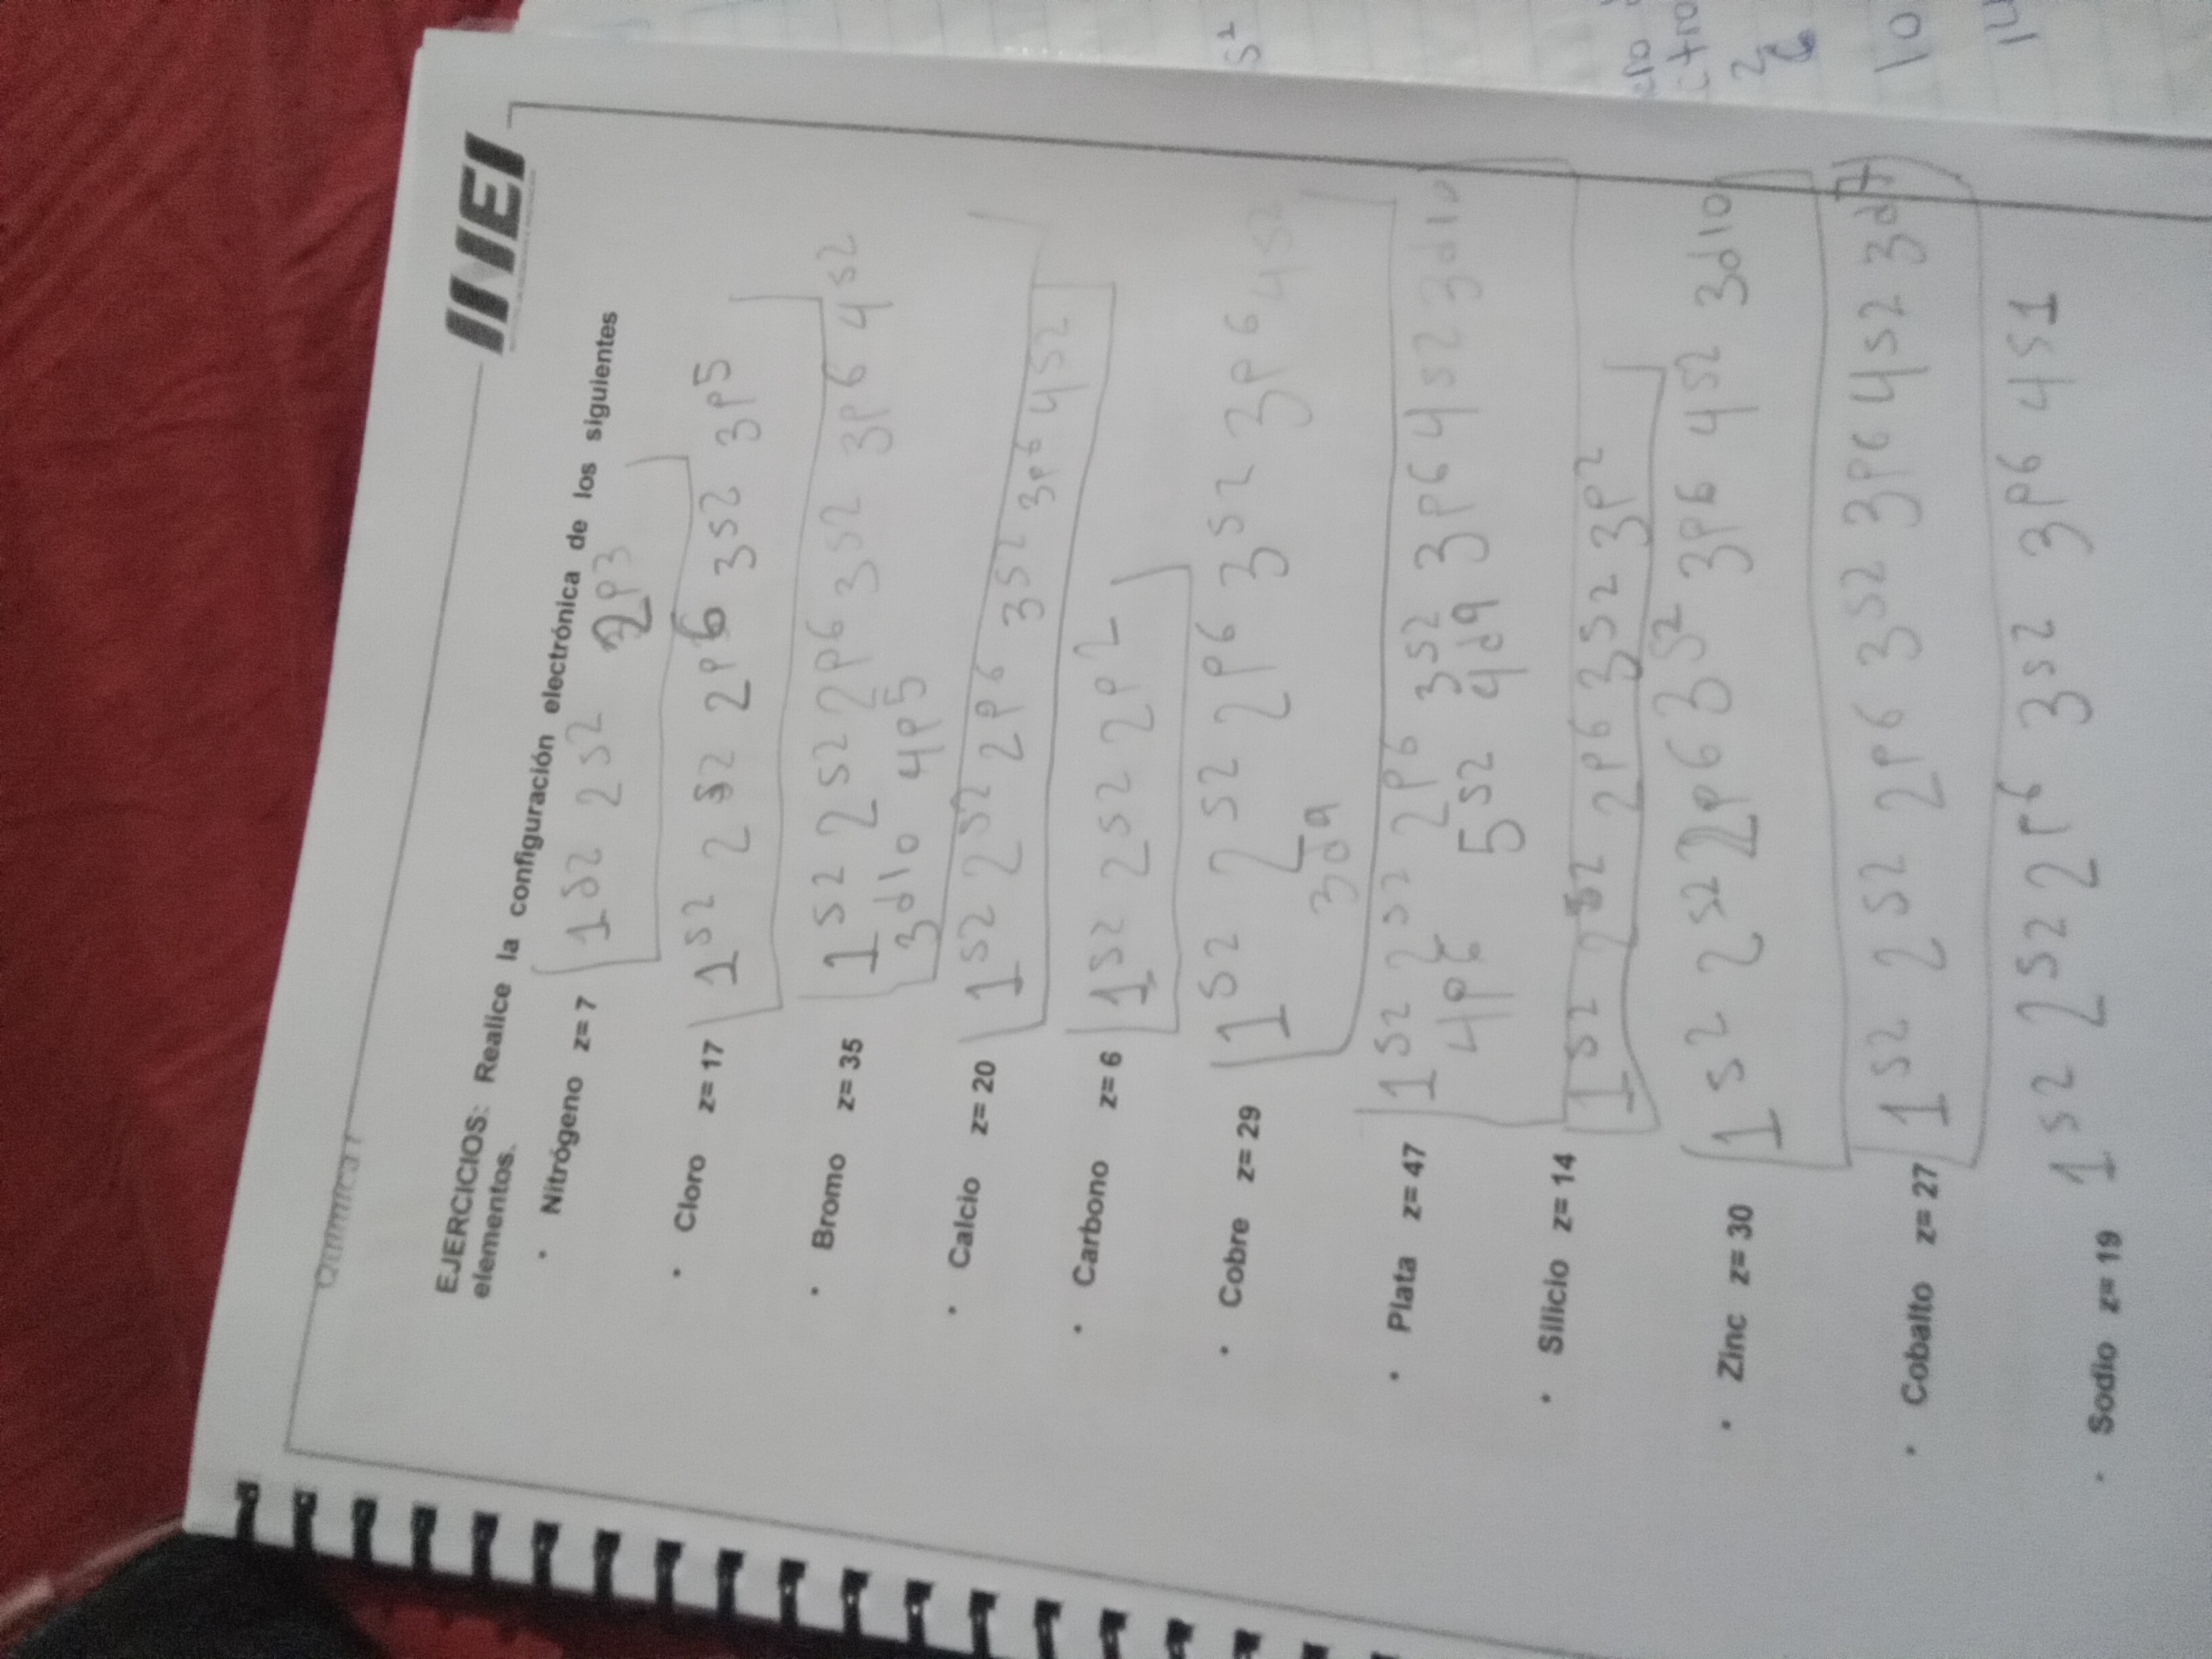 Química I
IINEI
EJERCICIOS: Realice la configuración electrónica de los siguientes
elementos.
• Nitrógeno z= 7 1s2 2s2 2p3
• Cloro z= 17 1s2 2s2 2p6 3s2 3p5
• Bromo z= 35 1s2 2s2 2p6 3s2 3p6 4s2
3d10 4p5
• Calcio z= 20 1s2 2s2 2p6 3s2 3p6 4s2
• Carbono z= 6 1s2 2s2 2p2
• Cobre z= 29 1s2 2s2 2p6 3s2 3p6 4s2
3d9
• Plata z= 47 1s2 2s2 2p6 3s2 3p6 4s2 3d10
4p6 5s2 4d9
• Silicio z= 14 1s2 2s2 2p6 3s2 3p2
• Zinc z= 30 1s2 2s2 2p6 3s2 3p6 4s2 3d10
• Cobalto z= 27 1s2 2s2 2p6 3s2 3p6 4s2 3d7
• Sodio z= 19 1s2 2s2 2p6 3s2 3p6 4s1
s2
10